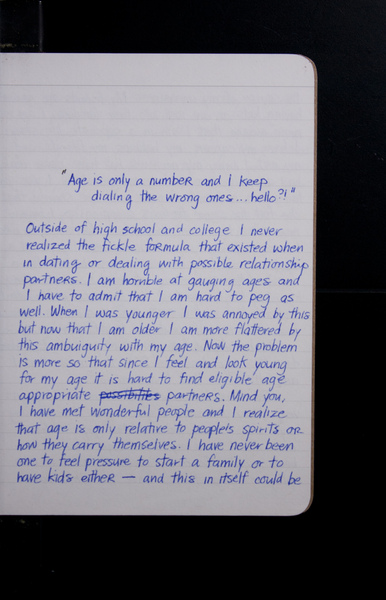 "Age is only a number and i keep
dialing the wrong ones... hello?!"
Outside of high school and college I never
realized the fickle formula that existed when
in dating or dealing with possible relationship
partners. I am horrible at gauging ages and
I have to admit that I am hard to peg as
well. When I was younger I was annoyed by this
but now that I am older I am more flattered by
this ambuiguity with my age. Now the problem
is more so that since I feel and look young
for my age it is hard to find eligible age
appropriate possibilties partners. Mind you,
I have met wonderful people and I realize
that age is only relative to people's spirits or
how they carry themselves. I have never been
one to feel pressure to start a family or to
have kids either — and this in itself could be